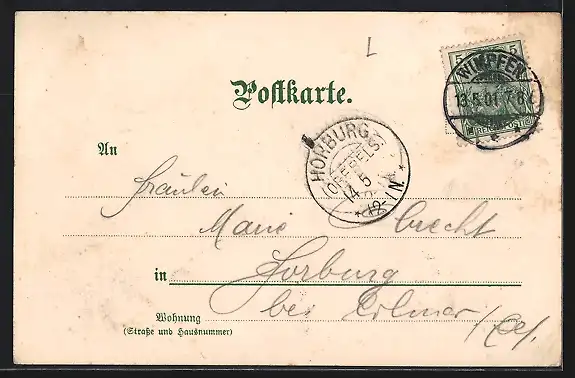 L
5 5
WIMPFEN
13.5.01. 7-8
REICHSPOST
Postkarte.
HORBURG
(OBERELS.)
14 5
12-1N.
An
Fräulein
Marie Obrecht
in Horburg
bei Colmar / Els.
Wohnung
(Straße und Hausnummer)